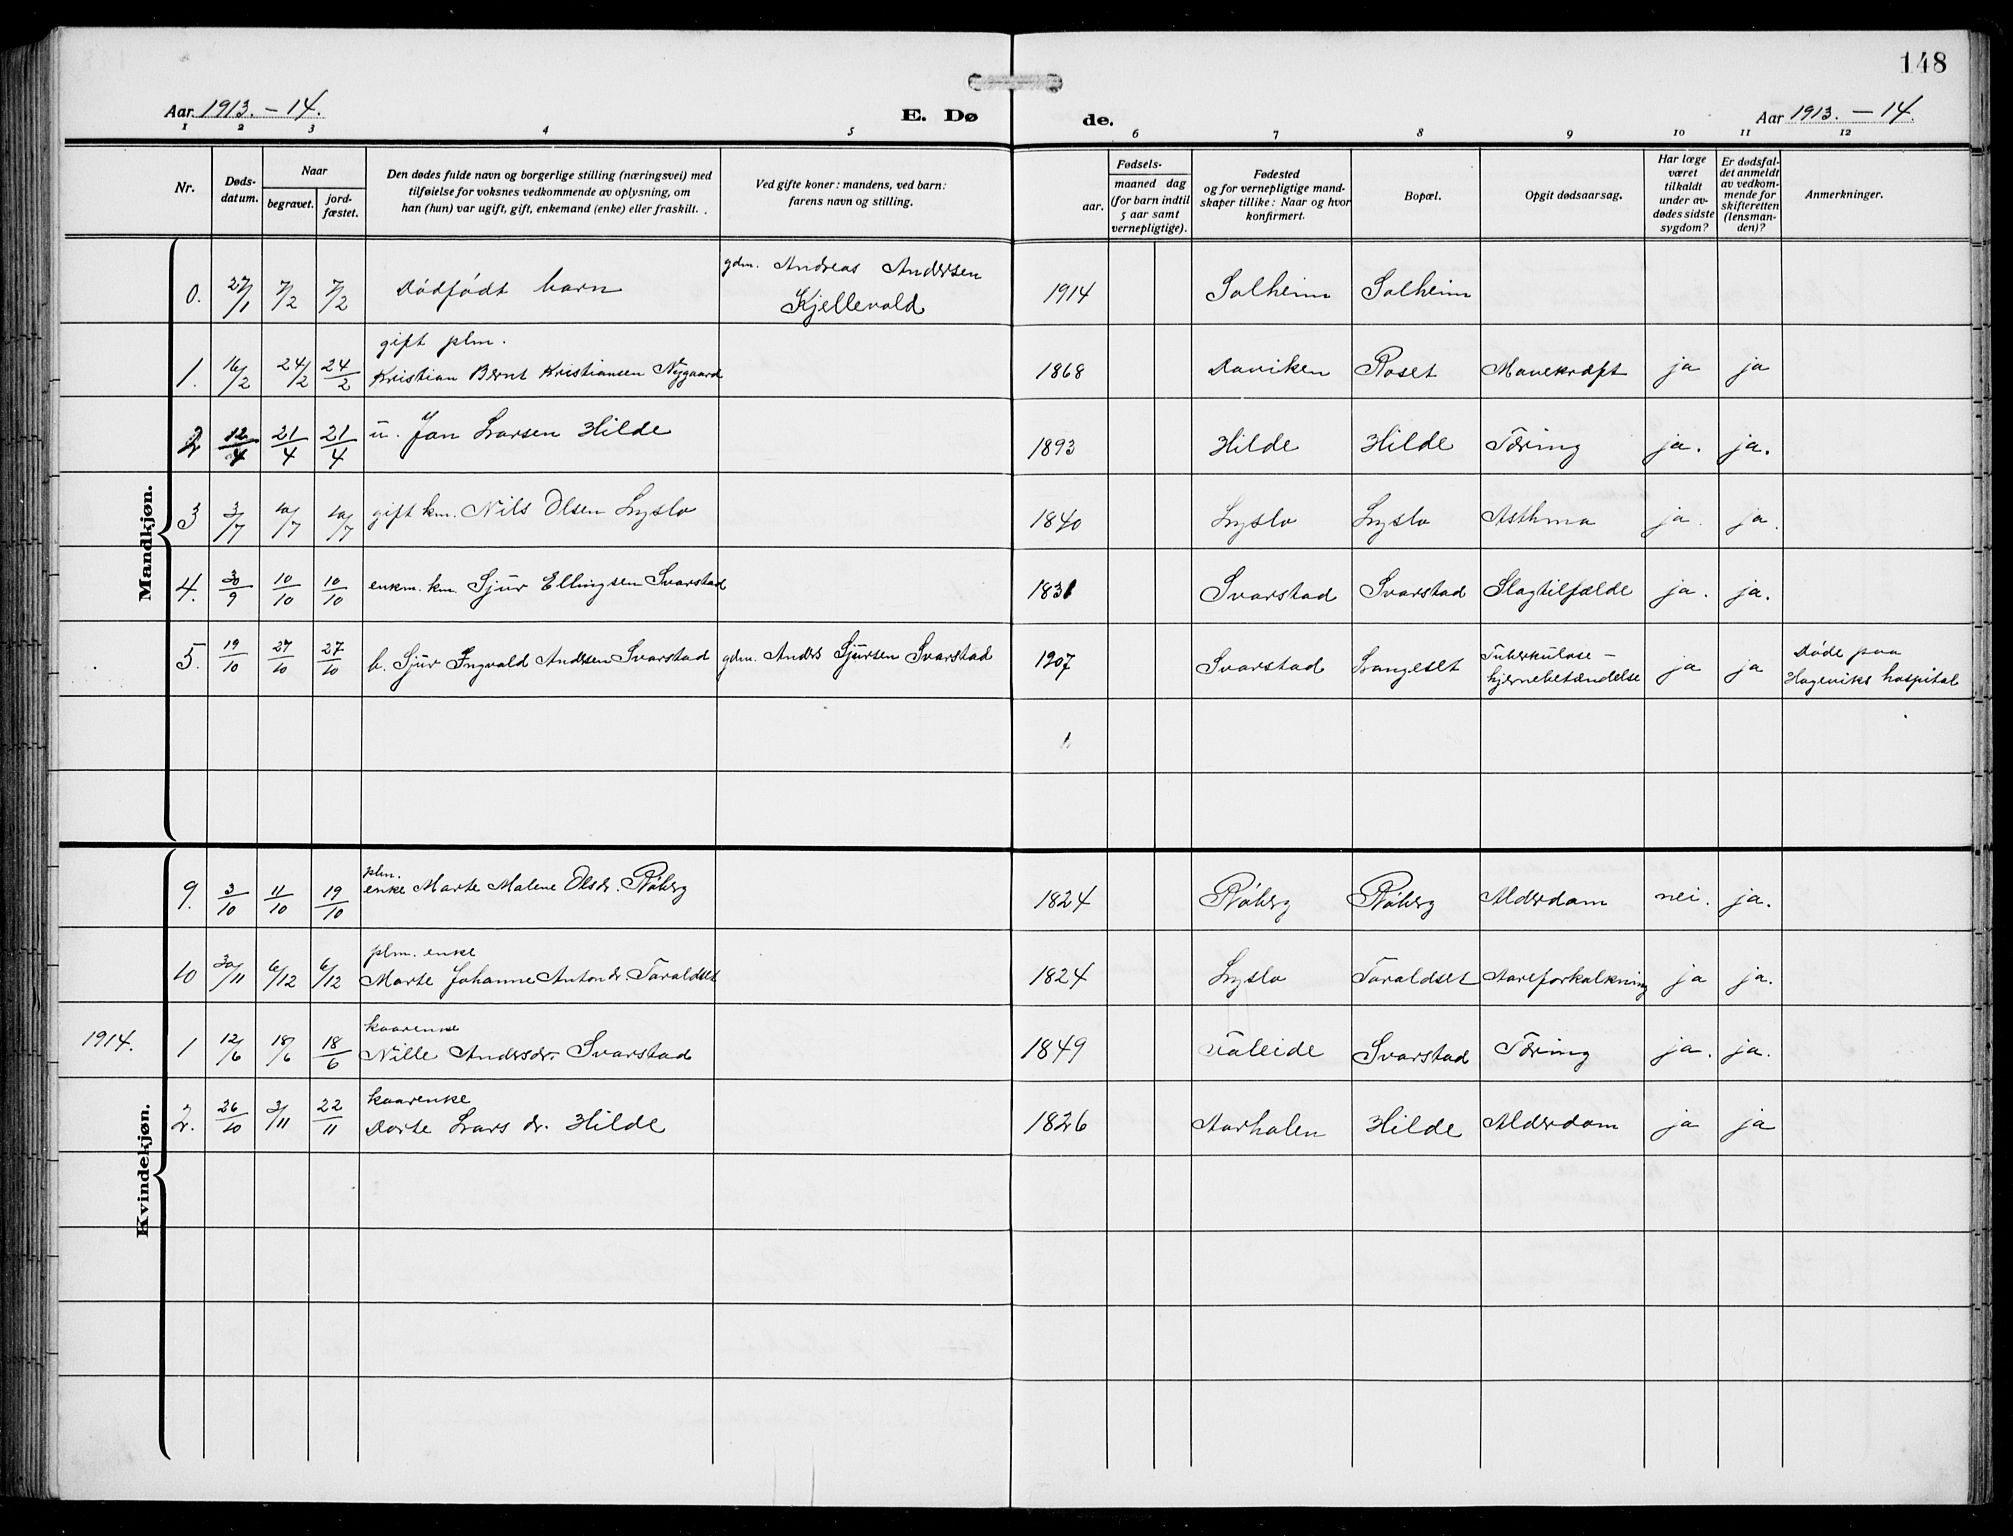 148
Aar 1913. - 14.
E. Dø
de.
Aar 1913. - 14.
1 2 3 4 5 6 7 8 9 10 11 12
Nr.
Døds-
datum.
Naar
begravet.
jord-
fæstet.
Den dødes fulde navn og borgerlige stilling (næringsvei) med
tilføielse for voksnes vedkommende av oplysning, om
han (hun) var ugift, gift, enkemand (enke) eller fraskilt.
Ved gifte koner: mandens, ved barn:
farens navn og stilling.
Fødsels-
aar.
maaned dag
(for barn indtil
5 aar samt
vernepligtige).
Fødested
og for vernepligtige mand-
skaper tillike: Naar og hvor
konfirmert.
Bopæl.
Opgit dødsaarsag.
Har læge
været
tilkaldt
under av-
dødes sidste
sygdom?
Er dødsfal-
det anmeldt
av vedkom-
mende for
skifteretten
(lensman-
den)?
Anmerkninger.
Mandkjøn.
gdm. Andreas Andersen
0. 27/1 7/2 7/2 Dødfødt barn Kjellevold 1914 Solheim Solheim
gift plm.
1. 16/2 24/2 24/2 Kristian Bernt Kristiansen Nygaard 1868 Daviken Roset Mavekræft ja ja
2 12/4 21/4 21/4 u. Jon Larsen Hilde 1893 Hilde Hilde Tæring ja. ja.
3 3/7 10/7 10/7 gift km. Nils Olsen Lyslo 1840 Lyslo Lyslo Asthma ja. ja.
4. 30/9 10/10 10/10 enkm. km. Sjur Ellingsen Svarstad 1831 Svarstad Svarstad Slagtilfælde ja. ja.
5. 19/10 27/10 27/10 b. Sjur Ingvald Andersen Svarstad gdm. Anders Sjursen Svarstad 1907 Svarstad Langeset Tuberkuløse - ja ja Døde paa
hjernebetændelse Hageviks hospital
Kvindekjøn.
plm.
9. 3/10 11/10 19/10 enke Marte Malene Olsdr. Røberg 1824 Røberg Røberg Alderdom nei. ja.
plm. enke
10 30/11 6/12 6/12 Marte Johanne Anton dr. Taraldset 1824 Lyslo Taraldset Aareforkalkning ja ja.
kaarenke
1914. 1 12/6 18/6 18/6 Nille Andersdr. Svarstad 1849 Faleide Svarstad Tæring ja. ja.
kaarenke
2. 26/10 3/11 22/11 Dorte Lars dr. Hilde 1826 Aarholen Hilde Alderdom ja ja